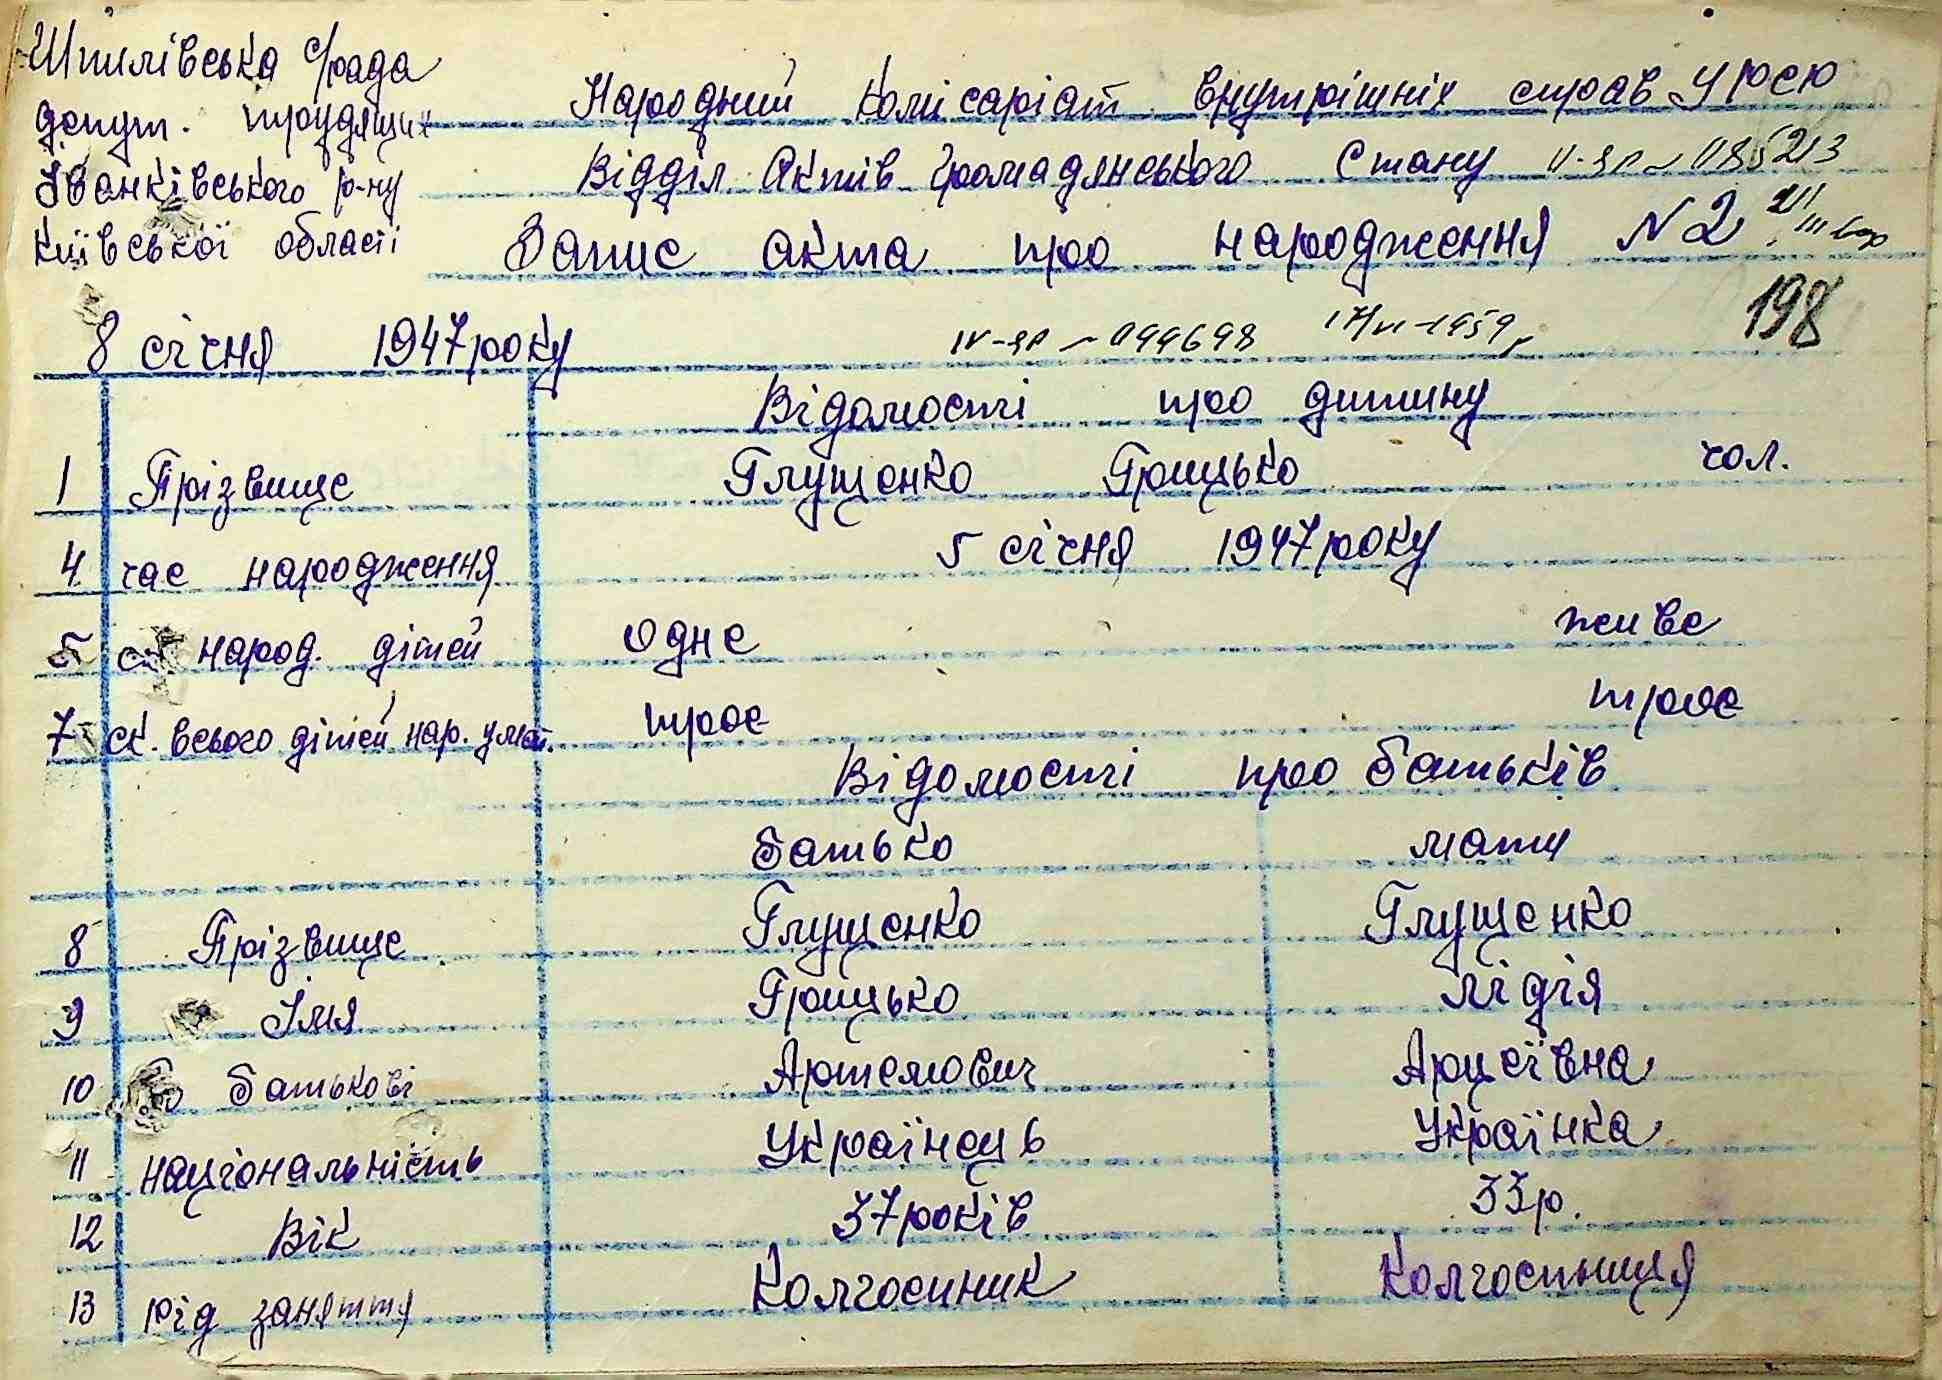 Шпилівська с/рада
депут. трудящих
Іванківського р-ну
Київської області
Народний Комісаріат внутрішніх справ УРСР
Відділ Актів Громадянського Стану II-ЯР № 085213
Запис акта про народження N 2
198
8 січня 1947 року IV-ЯР № 099698 17/VI-1959 р
Відомості про дитину
1 Прізвище Глущенко Грицько чол.
4 час народження 5 січня 1947 року
5 ск. народ. дітей одне живе
7 ск. всього дітей нар. у мат. троє троє
Відомості про батьків
батько мати
8 Прізвище Глущенко Глущенко
9 Імя Грицько Лідія
10 батькові Артемович Арсеївна
11 національність Українець Українка
12 Вік 37 років 33 р.
13 рід заняття Колгоспник Колгоспниця